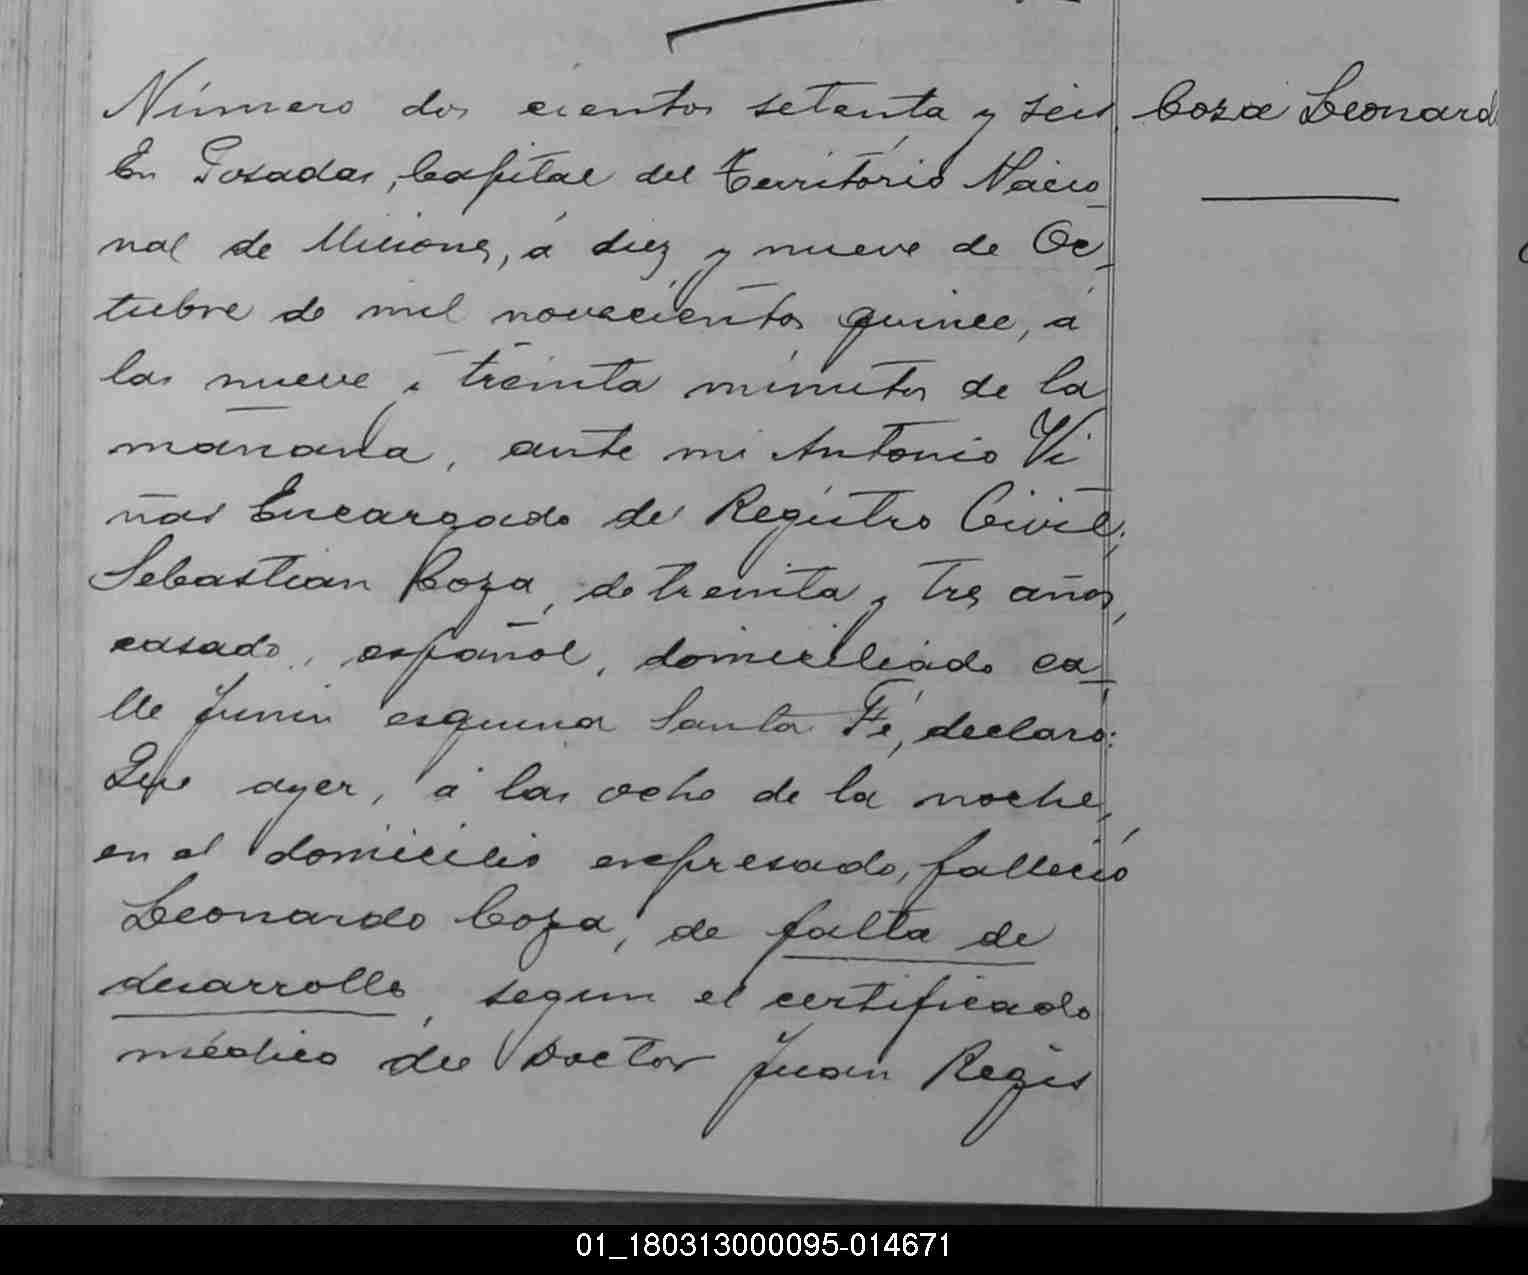 Número dos cientos setenta y seis
Coza Leonard
En Posadas, Capital del Territorio Nacio
nal de Misiones, á diez y nueve de Oc
tubre de mil novecientos quince, á
las nueve i treinta minutos de la
mañana, ante mi Antonio Vi
ñas Encargado del Registro Civil;
Sebastian Coza, de treinta y tres años,
casado, español, domiciliado ca
lle Junin esquina Santa Fé, declaró:
Que ayer, á las ocho de la noche,
en el domicilio expresado, falleció
Leonardo Coza, de falta de
desarrollo, segun el certificado
médico del Doctor Juan Regis
01_180313000095-014671